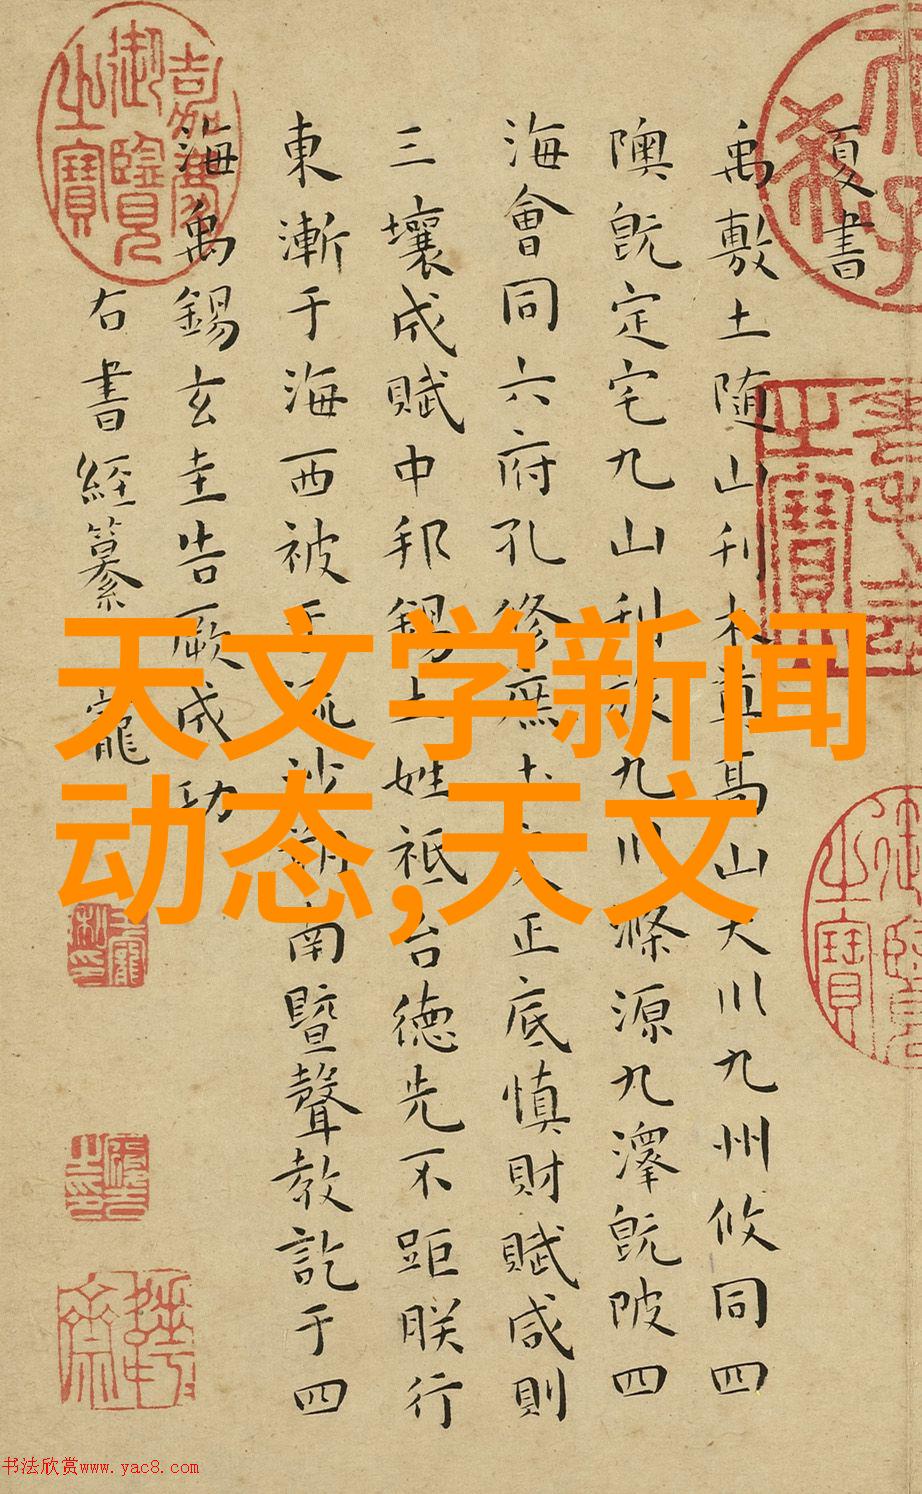 夏書
禹敷土随山刊木奠高山大川九州攸同四
隩既定宅九山刊旅九川滌源九澤既陂四
海會同六府孔修庶土交正底慎財賦咸則
三壤成賦中邦錫土姓祗台德先不距朕行
東漸于海西被于流沙朔南暨聲教訖于四
海禹錫玄圭告厥成功
右書經纂 寵
嘉慶御覽之寶
天文学新闻
动态,天文
书法欣赏www.yac8.com